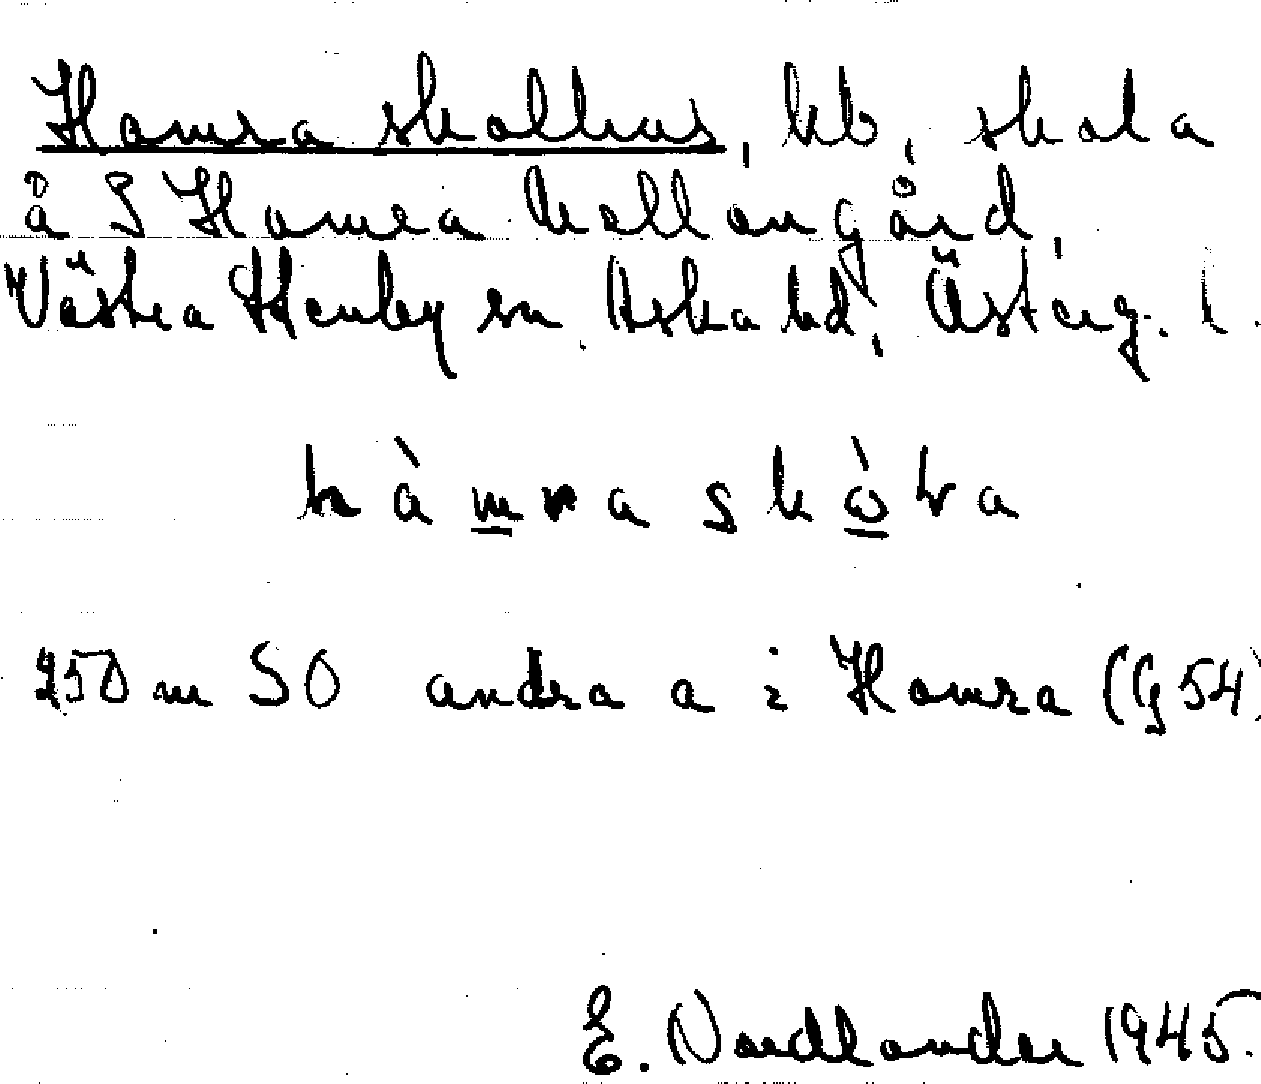 Hamra skolhus, hb, skola
å S Hamra Mellangård,
Västra Stenby sn, Aska hd, Österg. l.
hàmra skòla
250 m SO andra a i Hamra (G 54)
E. Nordlander 1945.